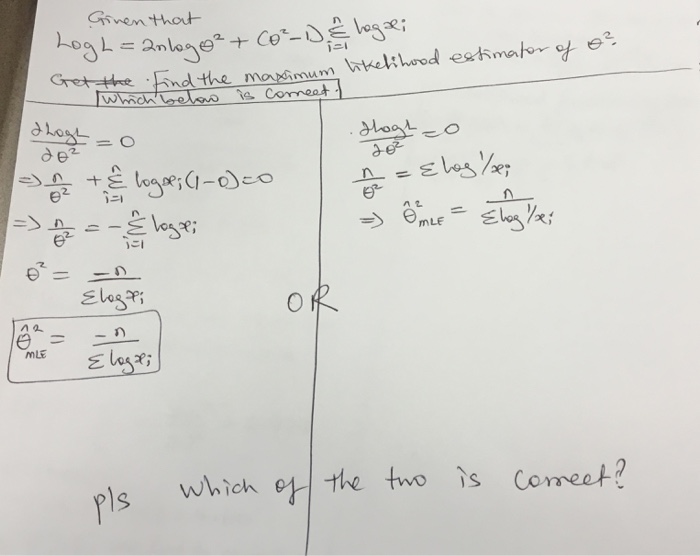 Given that
Log L = 2nlogθ² + (θ²-1) Σ_{i=1}^{n} log xᵢ
Get the . Find the maximum likelihood estimator of θ².
Which below is correct.
∂LogL/∂θ² = 0
=> n/θ² + Σ_{i=1}^{n} log xᵢ (1-0) = 0
=> n/θ² = - Σ_{i=1}^{n} log xᵢ
θ² = -n/Σ log xᵢ
θ̂²_MLE = -n/Σ log xᵢ
OR
∂LogL/∂θ² = 0
n/θ² = Σ log 1/xᵢ
=> θ̂²_MLE = n/Σ log 1/xᵢ
pls which of the two is correct?